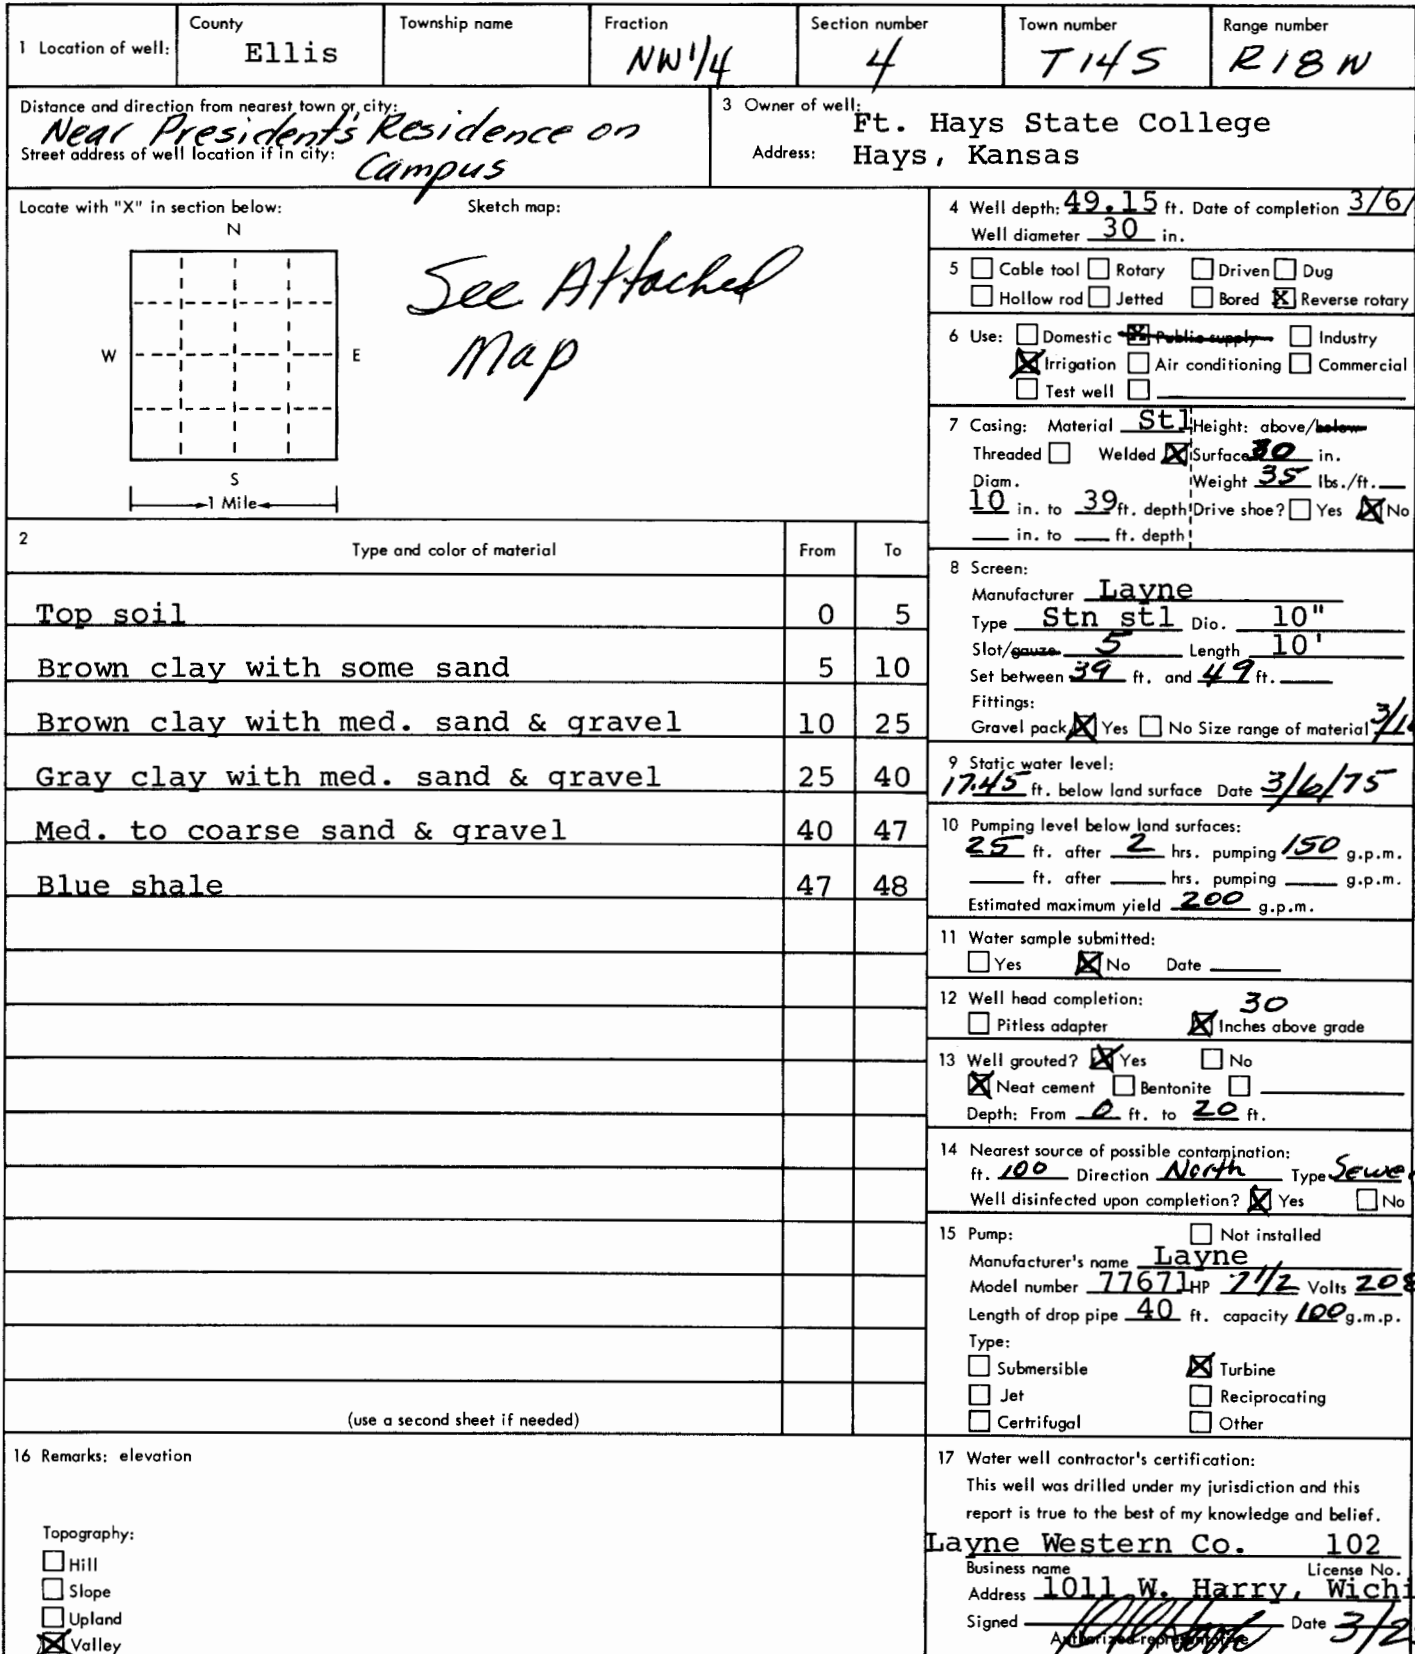 1 Location of well: County Ellis Township name Fraction NW1/4 Section number 4 Town number T14S Range number R18W
Distance and direction from nearest town or city: Near President's Residence on Campus
Street address of well location if in city:
3 Owner of well: Ft. Hays State College
Address: Hays, Kansas
Locate with "X" in section below:
N
W E
S
1 Mile
Sketch map:
See Attached
Map
2 Type and color of material From To
Top soil 0 5
Brown clay with some sand 5 10
Brown clay with med. sand & gravel 10 25
Gray clay with med. sand & gravel 25 40
Med. to coarse sand & gravel 40 47
Blue shale 47 48
(use a second sheet if needed)
16 Remarks: elevation
Topography:
Hill
Slope
Upland
X Valley
4 Well depth: 49.15 ft. Date of completion 3/6/
Well diameter 30 in.
5 Cable tool Rotary Driven Dug
Hollow rod Jetted Bored X Reverse rotary
6 Use: Domestic X Public supply Industry
X Irrigation Air conditioning Commercial
Test well
7 Casing: Material Stl Height: above/below
Threaded Welded X Surface 30 in.
Diam. Weight 35 lbs./ft.
10 in. to 39 ft. depth Drive shoe? Yes X No
in. to ft. depth
8 Screen:
Manufacturer Layne
Type Stn stl Dio. 10"
Slot/gauze 5 Length 10'
Set between 39 ft. and 49 ft.
Fittings:
Gravel pack X Yes No Size range of material 3/1
9 Static water level:
17.45 ft. below land surface Date 3/6/75
10 Pumping level below land surfaces:
25 ft. after 2 hrs. pumping 150 g.p.m.
ft. after hrs. pumping g.p.m.
Estimated maximum yield 200 g.p.m.
11 Water sample submitted:
Yes X No Date
12 Well head completion: 30
Pitless adapter X Inches above grade
13 Well grouted? X Yes No
X Neat cement Bentonite
Depth: From 0 ft. to 20 ft.
14 Nearest source of possible contamination:
ft. 100 Direction North Type Sewe
Well disinfected upon completion? X Yes No
15 Pump: Not installed
Manufacturer's name Layne
Model number 77671 HP 7 1/2 Volts 208
Length of drop pipe 40 ft. capacity 100 g.m.p.
Type:
Submersible X Turbine
Jet Reciprocating
Certrifugal Other
17 Water well contractor's certification:
This well was drilled under my jurisdiction and this
report is true to the best of my knowledge and belief.
Layne Western Co. 102
Business name License No.
Address 1011 W. Harry, Wichi
Signed Date 3/2
Authorized representative